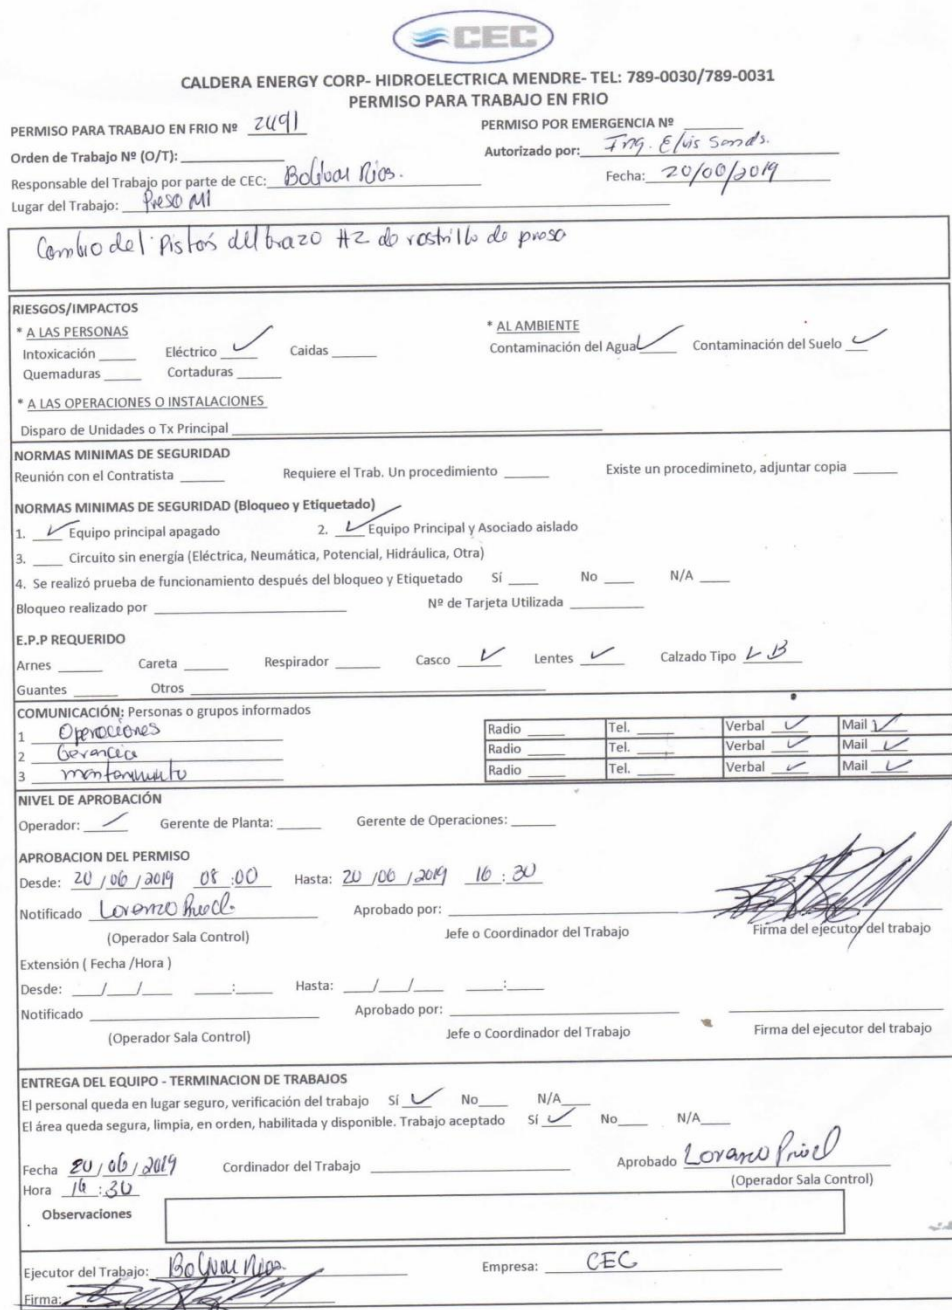 CEC
CALDERA ENERGY CORP- HIDROELECTRICA MENDRE- TEL: 789-0030/789-0031
PERMISO PARA TRABAJO EN FRIO
PERMISO PARA TRABAJO EN FRIO Nº 2491 PERMISO POR EMERGENCIA Nº
Orden de Trabajo Nº (O/T): Autorizado por: Ing. Elvis
Responsable del Trabajo por parte de CEC: Bolivar Rios. Fecha: 20/06/2019
Lugar del Trabajo: Presa M1
Cambio del piston del brazo #2 de rastrillo de presa
RIESGOS/IMPACTOS
* A LAS PERSONAS * AL AMBIENTE
Intoxicación Eléctrico ✓ Caidas Contaminación del Agua ✓ Contaminación del Suelo ✓
Quemaduras Cortaduras
* A LAS OPERACIONES O INSTALACIONES
Disparo de Unidades o Tx Principal
NORMAS MINIMAS DE SEGURIDAD
Reunión con el Contratista Requiere el Trab. Un procedimiento Existe un procedimineto, adjuntar copia
NORMAS MINIMAS DE SEGURIDAD (Bloqueo y Etiquetado)
1. ✓ Equipo principal apagado 2. ✓ Equipo Principal y Asociado aislado
3. Circuito sin energía (Eléctrica, Neumática, Potencial, Hidráulica, Otra)
4. Se realizó prueba de funcionamiento después del bloqueo y Etiquetado Sí No N/A
Bloqueo realizado por Nº de Tarjeta Utilizada
E.P.P REQUERIDO
Arnes Careta Respirador Casco ✓ Lentes ✓ Calzado Tipo
Guantes Otros
COMUNICACIÓN: Personas o grupos informados
1 Operaciones Radio Tel. Verbal ✓ Mail ✓
2 Gerencia Radio Tel. Verbal ✓ Mail ✓
3 mantenimiento Radio Tel. Verbal ✓ Mail ✓
NIVEL DE APROBACIÓN
Operador: ✓ Gerente de Planta: Gerente de Operaciones:
APROBACION DEL PERMISO
Desde: 20/06/2019 08:00 Hasta: 20/06/2019 16:30
Notificado Lorenzo Aprobado por:
(Operador Sala Control) Jefe o Coordinador del Trabajo Firma del ejecutor del trabajo
Extensión ( Fecha /Hora )
Desde: / / : Hasta: / / :
Notificado Aprobado por:
(Operador Sala Control) Jefe o Coordinador del Trabajo Firma del ejecutor del trabajo
ENTREGA DEL EQUIPO - TERMINACION DE TRABAJOS
El personal queda en lugar seguro, verificación del trabajo Sí ✓ No N/A
El área queda segura, limpia, en orden, habilitada y disponible. Trabajo aceptado Sí ✓ No N/A
Fecha 20/06/2019 Cordinador del Trabajo Aprobado Lorenzo
Hora 16:30 (Operador Sala Control)
Observaciones
Ejecutor del Trabajo: Bolivar Rios Empresa: CEC
Firma: